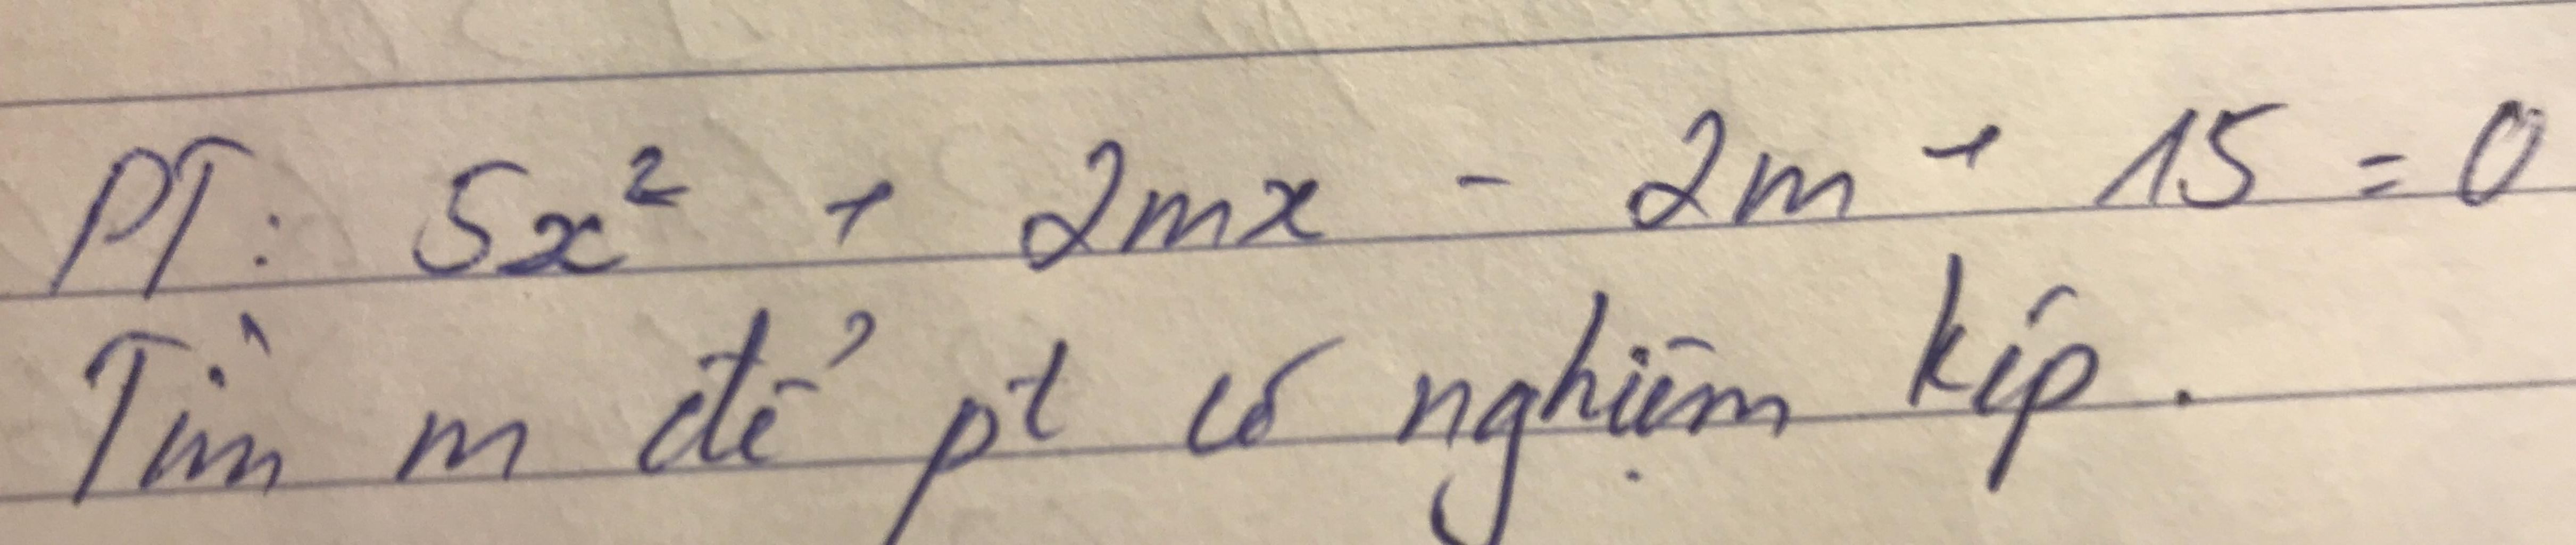 PT: 5x² + 2mx - 2m + 15 = 0
Tìm m để pt có nghiệm kép.